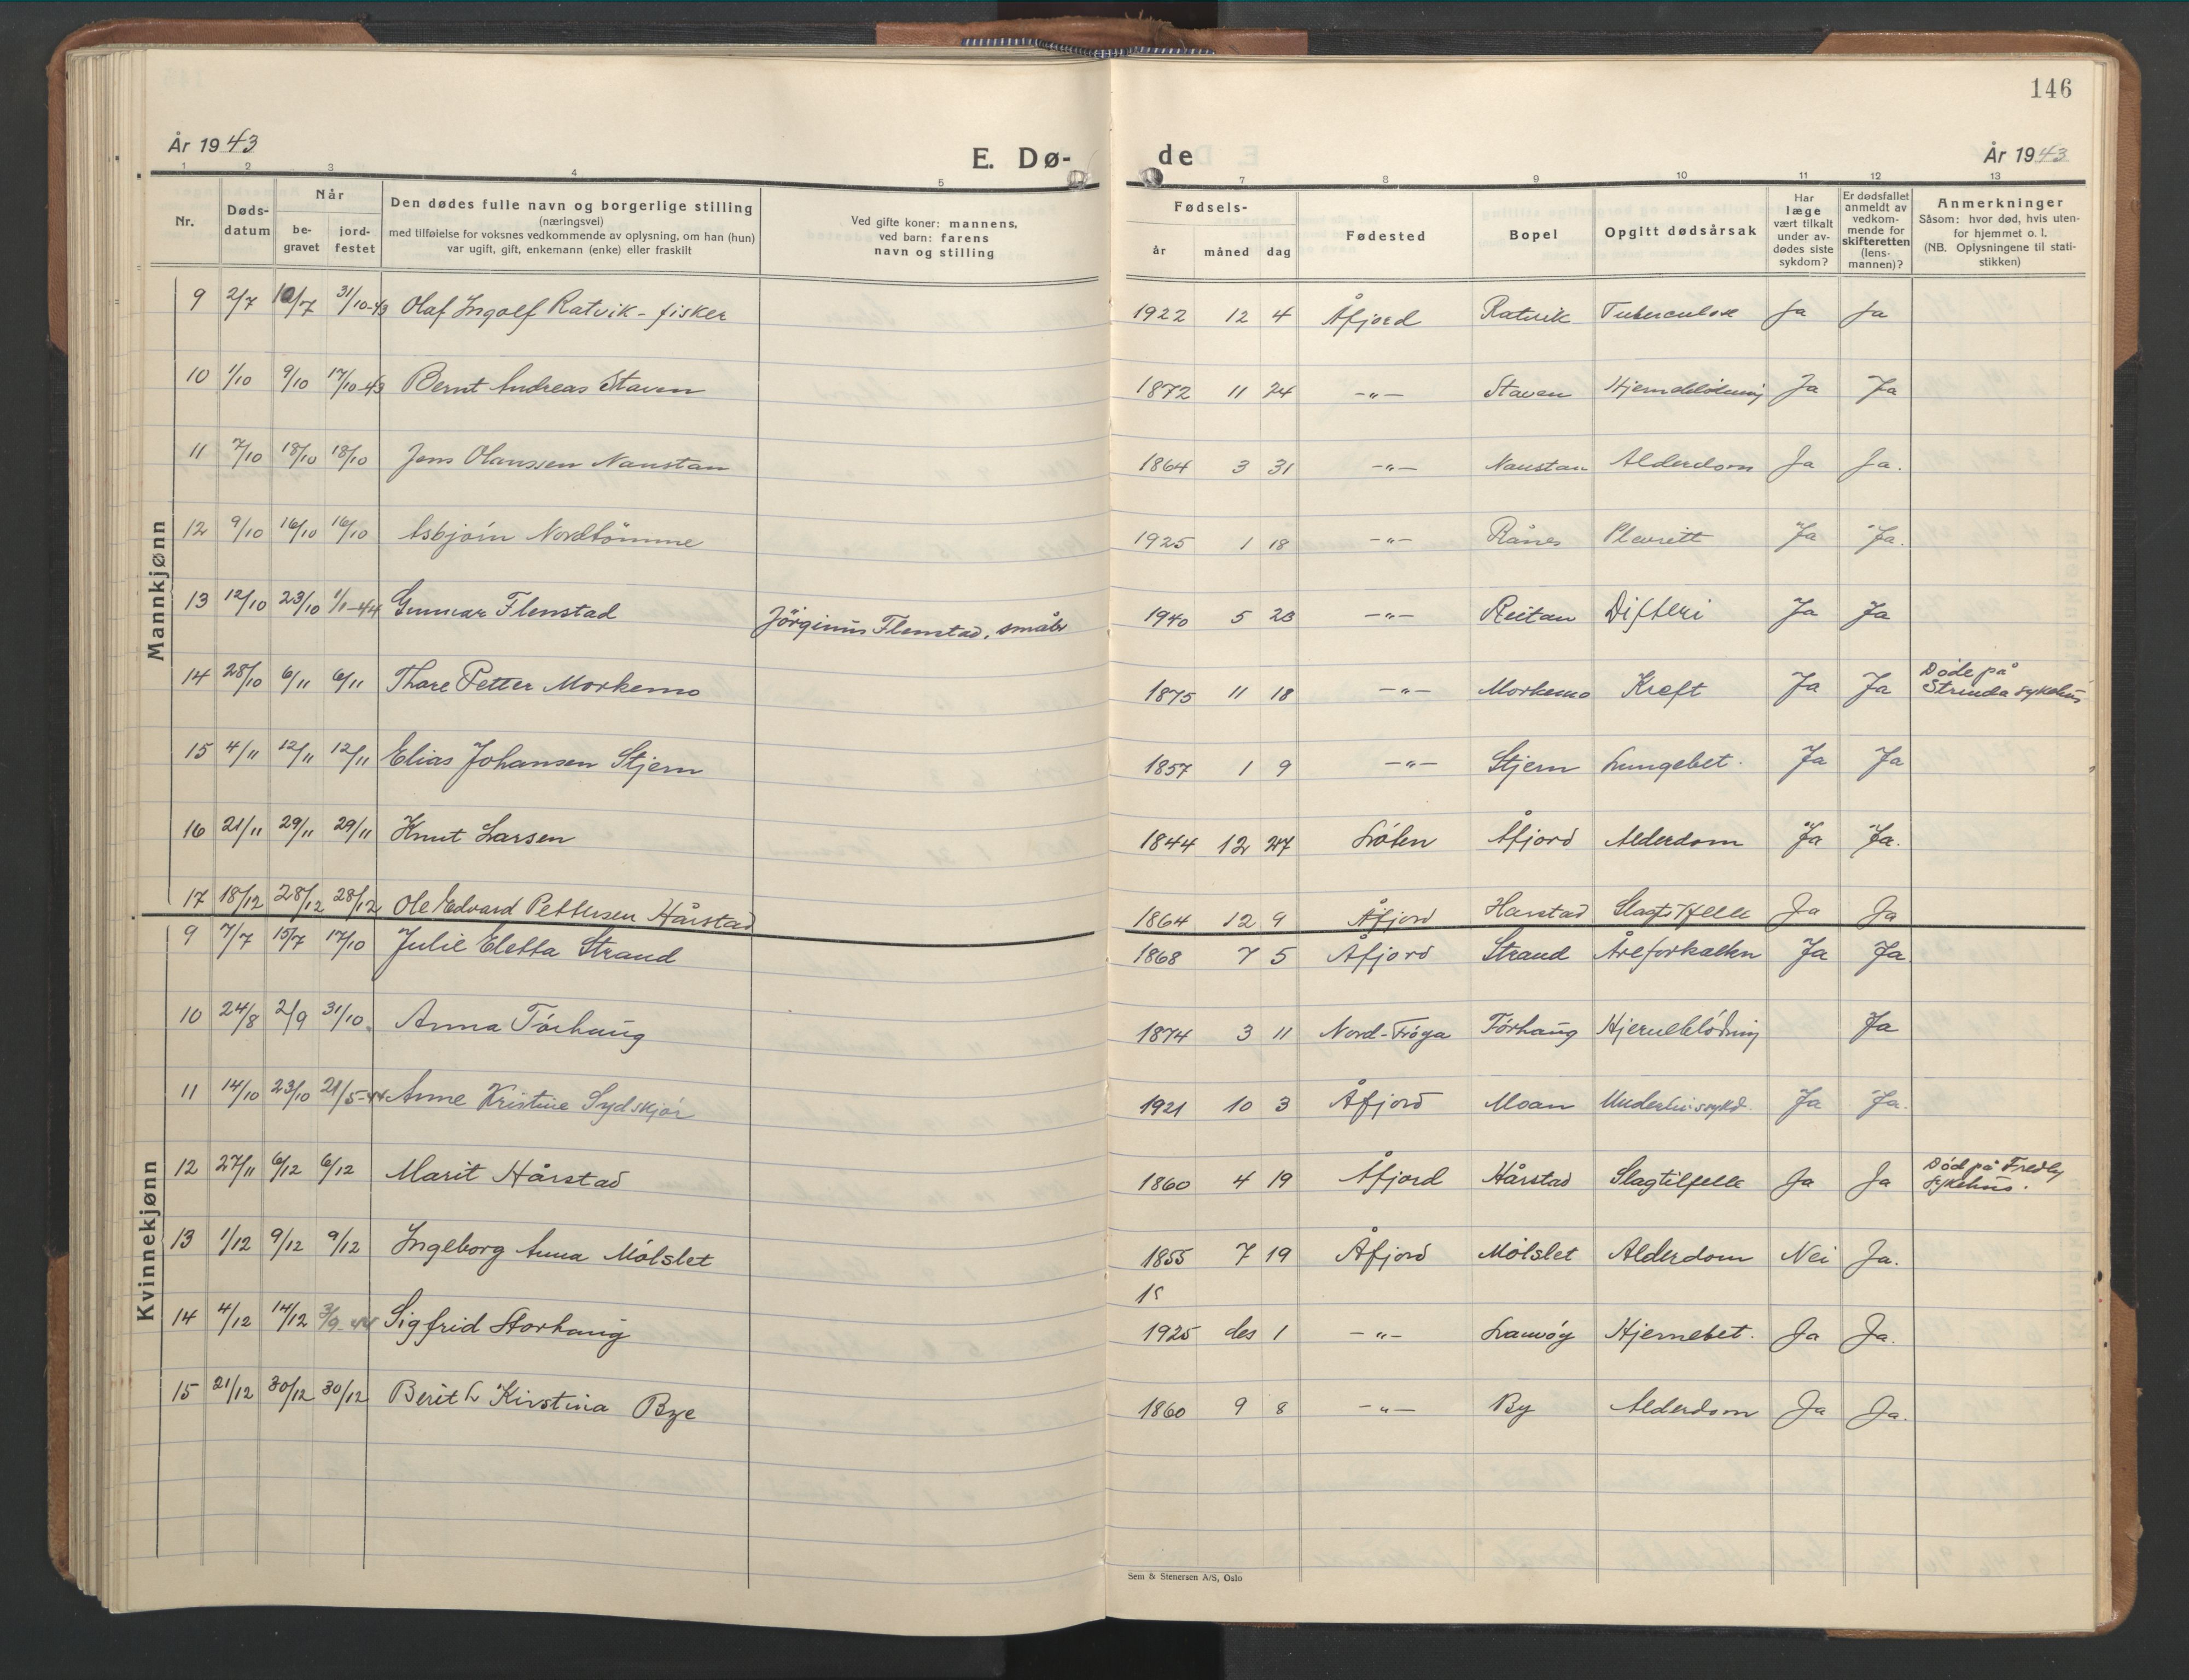 146
År 1943
E. Dø-
de
År 1943
1 2 3 4 5 7 8 9 10 11 12 13
Nr.
Døds-
datum
Når
be-
gravet
jord-
festet
Den dødes fulle navn og borgerlige stilling
(næringsvei)
med tilføielse for voksnes vedkommende av oplysning, om han (hun)
var ugift, gift, enkemann (enke) eller fraskilt
Ved gifte koner: mannens,
ved barn: farens
navn og stilling
Fødsels-
år måned dag
Fødested
Bopel
Opgitt dødsårsak
Har
læge
vært tilkalt
under av-
dødes siste
sykdom?
Er dødsfallet
anmeldt av
vedkom-
mende for
skifteretten
(lens-
mannen)?
Anmerkninger
Såsom: hvor død, hvis uten-
for hjemmet o. l.
(NB. Oplysningene til stati-
stikken)
Mannkjønn
9 2/7 10/7 31/10-43 Olaf Ingolf Ratvik - fisker 1922 12 4 Åfjord Ratvik Tuberculose Ja Ja
10 1/10 9/10 17/10-43 Bernt Andreas Staven 1872 11 24 -"- Staven Hjerneblödning Ja Ja
11 7/10 18/10 18/10 Jens Olaussen Naustan 1864 3 31 -"- Naustan Alderdom Ja Ja.
12 9/10 16/10 16/10 Asbjörn Nordtömme 1925 1 18 -"- Rånes Plevritt Ja Ja.
13 12/10 23/10 1/1-44 Gunnar Flenstad Jörginus Flenstad, småbr 1940 5 23 -"- Reitan Difteri Ja Ja
14 28/10 6/11 6/11 Thore Petter Morkemo 1875 11 18 -"- Morkemo Kreft Ja Ja Döde på
Strinda sykehus
15 4/11 12/11 12/11 Elias Johansen Stjern 1857 1 9 -"- Stjern Lungebet. Ja Ja
16 21/11 29/11 29/11 Knut Larsen 1844 12 27 Löten Åfjord Alderdom Ja Ja.
17 18/12 28/12 28/12 Ole Edvard Pettersen Hårstad 1864 12 9 Åfjord Harstad Slagtilfelle Ja Ja
Kvinnekjønn
9 7/7 15/7 17/10 Julie Eletta Strand 1868 7 5 Åfjord Strand Åreforkalkn Ja Ja
10 24/8 2/9 31/10 Anna Törhaug 1874 3 11 Nord-Fröya Törhaug Hjerneblödning Ja
11 14/10 23/10 21/5-44 Anne Kristine Sydskjör 1921 10 3 Åfjord Moan Underlivssykd. Ja Ja.
12 27/11 6/12 6/12 Marit Hårstad 1860 4 19 Åfjord Hårstad Slagtilfelle Ja Ja Död på Fredly
sykehus.
13 1/12 9/12 9/12 Ingeborg Anna Mölslet 1855 7 19 Åfjord Mölslet Alderdom Nei Ja.
14 4/12 14/12 3/9-44 Sigfrid Storhaug 1925 des 1 -"- Lauvöy Hjernebet. Ja Ja.
15 21/12 30/12 30/12 Berit L Kirstina Bye 1860 9 8 -"- By Alderdom Ja Ja.
Sem & Stenersen A/S, Oslo